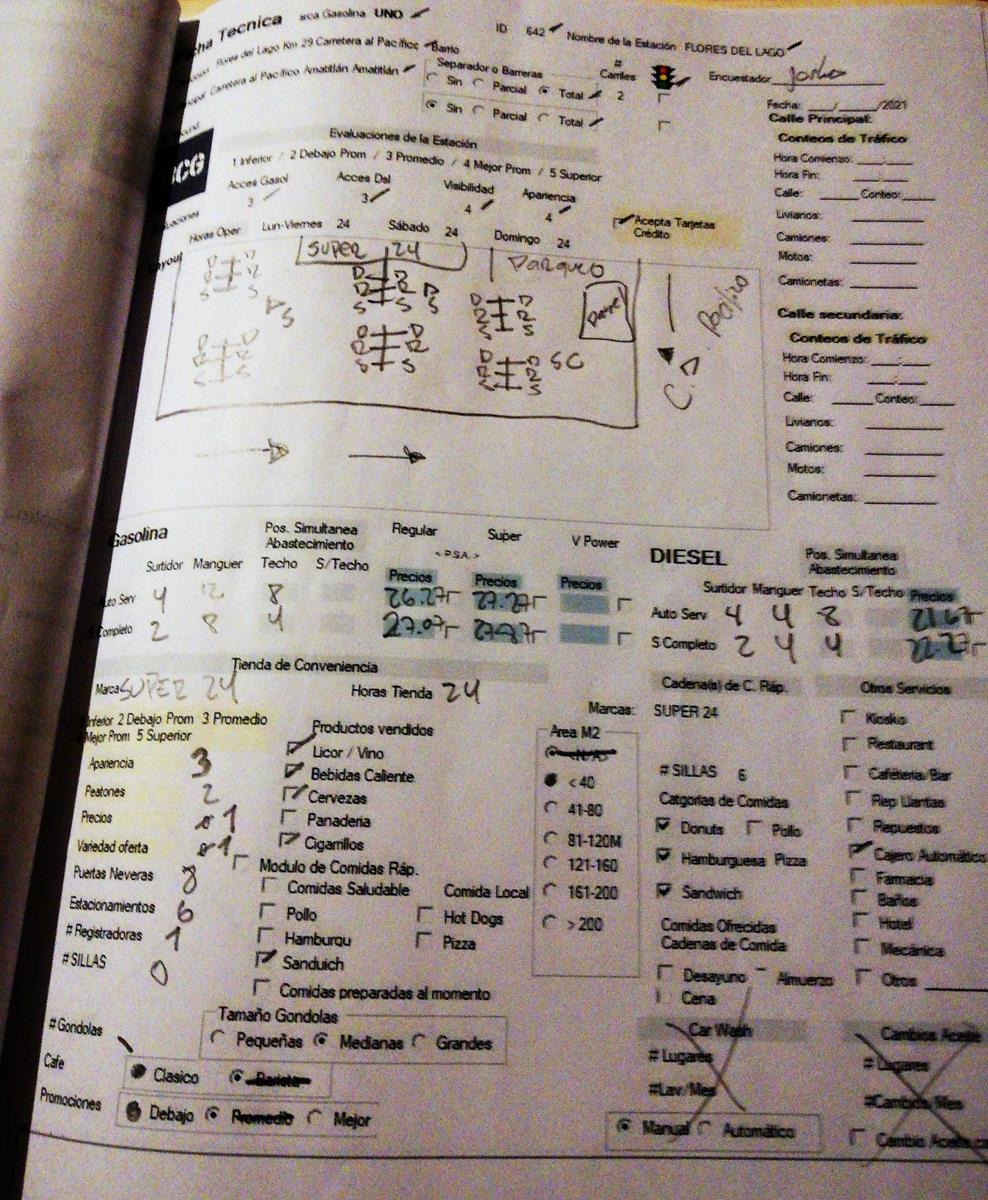 ha Tecnica arca Gasolina UNO ID 642 Nombre de la Estación FLORES DEL LAGO
Flores del Lago Km 29 Carretera al Pacífico Barrio
Carretera al Pacífico Amatitlán Amatitlán
Separador o Barreras # Carriles Encuestador
Sin Parcial Total 2
Sin Parcial Total
Fecha: ___/___/2021
Calle Principal:
Conteos de Tráfico
Hora Comienzo: :
Hora Fin: :
Calle: Conteo:
Livianos:
Camiones:
Motos:
Camionetas:
Calle secundaria:
Conteos de Tráfico
Hora Comienzo: :
Hora Fin: :
Calle: Conteo:
Livianos:
Camiones:
Motos:
Camionetas:
Evaluaciones de la Estación
1 Inferior / 2 Debajo Prom / 3 Promedio / 4 Mejor Prom / 5 Superior
Acces Gasol Acces Dsl Visibilidad Apariencia
3 3 4 4
Acepta Tarjetas Crédito
Horas Oper Lun-Viernes 24 Sábado 24 Domingo 24
Layout
SUPER 24 Parqueo
D D D D
R R R R D
S S S S S
D S
D D
R R
S S
D D D D
R R R R
S S S S
D D SC
R R
S S
Gasolina
Pos. Simultanea Abastecimiento Regular Super V Power
< P.S.A. >
Surtidor Manguer Techo S/Techo Precios Precios Precios
Auto Serv 4 12 8 26.27 27.27
S Completo 2 8 4 27.07 27.87
DIESEL
Pos. Simultanea Abastecimiento
Surtidor Manguer Techo S/Techo Precios
Auto Serv 4 4 8 21.67
S Completo 2 4 4 22.27
Tienda de Conveniencia
Marca SUPER 24 Horas Tienda 24
1 Inferior 2 Debajo Prom 3 Promedio
4 Mejor Prom 5 Superior
Apariencia 3
Peatones 2
Precios 1
Variedad oferta 1
Puertas Neveras 8
Estacionamientos 6
# Registradoras 1
# SILLAS 0
Productos vendidos
Licor / Vino
Bebidas Caliente
Cervezas
Panaderia
Cigarrillos
Modulo de Comidas Ráp.
Comidas Saludable Comida Local
Pollo Hot Dogs
Hamburqu Pizza
Sanduich
Comidas preparadas al momento
Marcas: SUPER 24
Area M2
N/A
< 40
41-80
81-120M
121-160
161-200
> 200
Cadena(s) de C. Ráp.
# SILLAS 6
Catgorias de Comidas
Donuts Pollo
Hamburguesa Pizza
Sandwich
Comidas Ofrecidas
Cadenas de Comida
Desayuno Almuerzo
Cena
Otros Servicios
Kiosko
Restaurant
Caféteria/Bar
Rep Llantas
Repuestos
Cajero Automático
Farmacia
Baños
Hotel
Mecánica
Otros
# Gondolas
Tamaño Gondolas
Pequeñas Medianas Grandes
Cafe Clasico Barista
Promociones Debajo Promedio Mejor
Car Wash
# Lugares
#Lav/Mes
Manual Automático
Cambios Aceite
# Lugares
#Cambios/Mes
Cambio Aceite